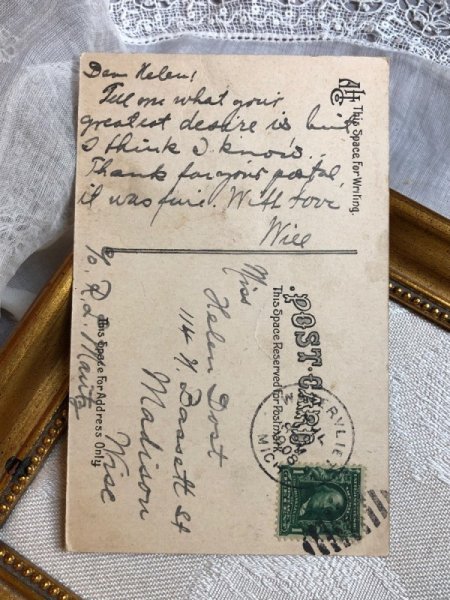 Dear Helen!
Tell me what your
greatest desire is
I think I know.
Thanks for your postal,
it was fine. With Love
Will
This Space For Writing.
POST CARD
This Space Reserved for Postmark
Miss
Helen Dost
114 N. Bassett St
Madison
Wisc
c/o. R.L.
This Space For Address Only.
MICH